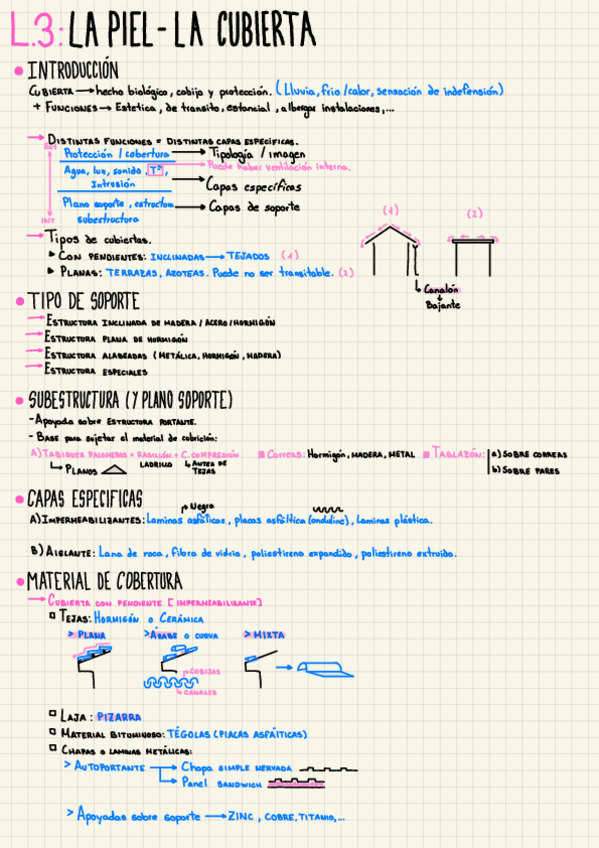 L.3: LA PIEL - LA CUBIERTA
• INTRODUCCIÓN
CUBIERTA → hecho biológico, cobijo y protección. (Lluvia, frío/calor, sensación de indefensión)
+ FUNCIONES → Estética, de transito, estancial, albergar instalaciones,...
→ DISTINTAS FUNCIONES = DISTINTAS CAPAS ESPECÍFICAS.
EXT
Protección / cobertura → Tipología / imagen
→ Puede haber ventilación interna.
Agua, luz, sonido, Tª,
Intrusión → Capas específicas
Plano soporte, estructura → Capas de soporte
subestructura
INT
→ Tipos de cubiertas.
▸ CON PENDIENTES: INCLINADAS → TEJADOS (1)
▸ PLANAS: TERRAZAS, AZOTEAS. Puede no ser transitable. (2)
(1) (2)
Canalón
↓
Bajante
• TIPO DE SOPORTE
→ ESTRUCTURA INCLINADA DE MADERA / ACERO / HORMIGÓN
→ ESTRUCTURA PLANA DE HORMIGÓN
→ ESTRUCTURA ALABEADAS (METÁLICA, HORMIGÓN, MADERA)
→ ESTRUCTURA ESPECIALES
• SUBESTRUCTURA (Y PLANO SOPORTE)
- Apoyada sobre ESTRUCTURA PORTANTE.
- BASE para sujetar el material de cobrición:
A) TABIQUES PALOMEROS + RASILLÓN + C. COMPRESIÓN ■ CORREAS: Hormigón, MADERA, METAL ■ TABLAZÓN: a) SOBRE CORREAS
↳ PLANOS LADRILLO ↳ ANTES DE TEJAS b) SOBRE PARES
• CAPAS ESPECIFICAS
Negro
A) IMPERMEABILIZANTES: Laminas asfálticas, placas asfáltica (onduline), Laminas plástica.
B) AISLANTE: Lana de roca, fibra de vidrio, poliestireno expandido, poliestireno extruido.
• MATERIAL DE COBERTURA
→ CUBIERTA CON PENDIENTE [IMPERMEABILIZANTE]
□ TEJAS: HORMIGÓN O CERÁMICA
> PLANA > ÁRABE O CURVA > MIXTA
COBIJAS
CANALES
□ LAJA: PIZARRA
□ MATERIAL BITUMINOSO: TÉGOLAS (PLACAS ASFÁLTICAS)
□ CHAPAS O LAMINAS METÁLICAS:
> AUTOPORTANTE → Chapa SIMPLE NERVADA
→ Panel SANDWICH
> Apoyadas sobre soporte → ZINC, COBRE, TITANIO,...